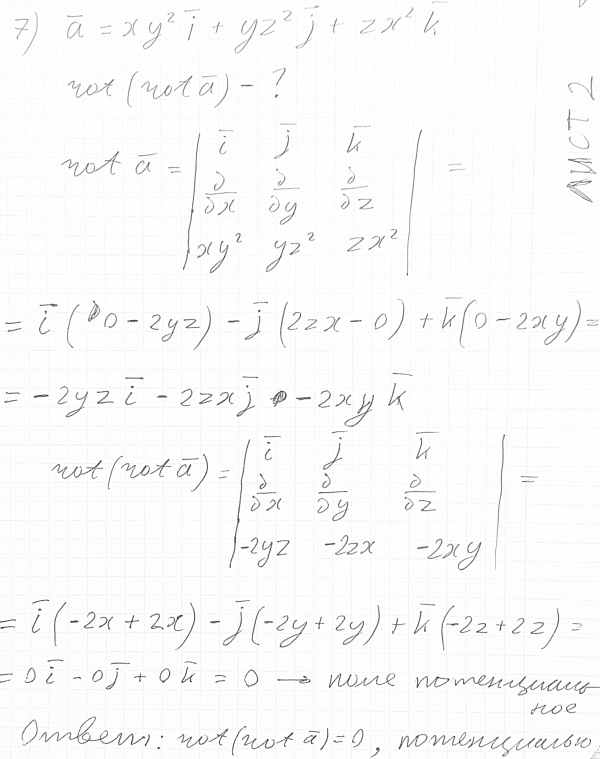 7) a̅ = xy² i̅ + yz² j̅ + zx² k̅
rot (rot a̅) - ?
ЛИСТ 2
rot a̅ = | i̅ j̅ k̅ | =
∂/∂x ∂/∂y ∂/∂z
xy² yz² zx²
= i̅ (0 - 2yz) - j̅ (2zx - 0) + k̅ (0 - 2xy) =
= -2yz i̅ - 2zx j̅ - 2xy k̅
rot (rot a̅) = | i̅ j̅ k̅ | =
∂/∂x ∂/∂y ∂/∂z
-2yz -2zx -2xy
= i̅ (-2x + 2x) - j̅ (-2y + 2y) + k̅ (-2z + 2z) =
= 0 i̅ - 0 j̅ + 0 k̅ = 0 → поле потенциаль
ное
Ответ: rot (rot a̅) = 0, потенциально